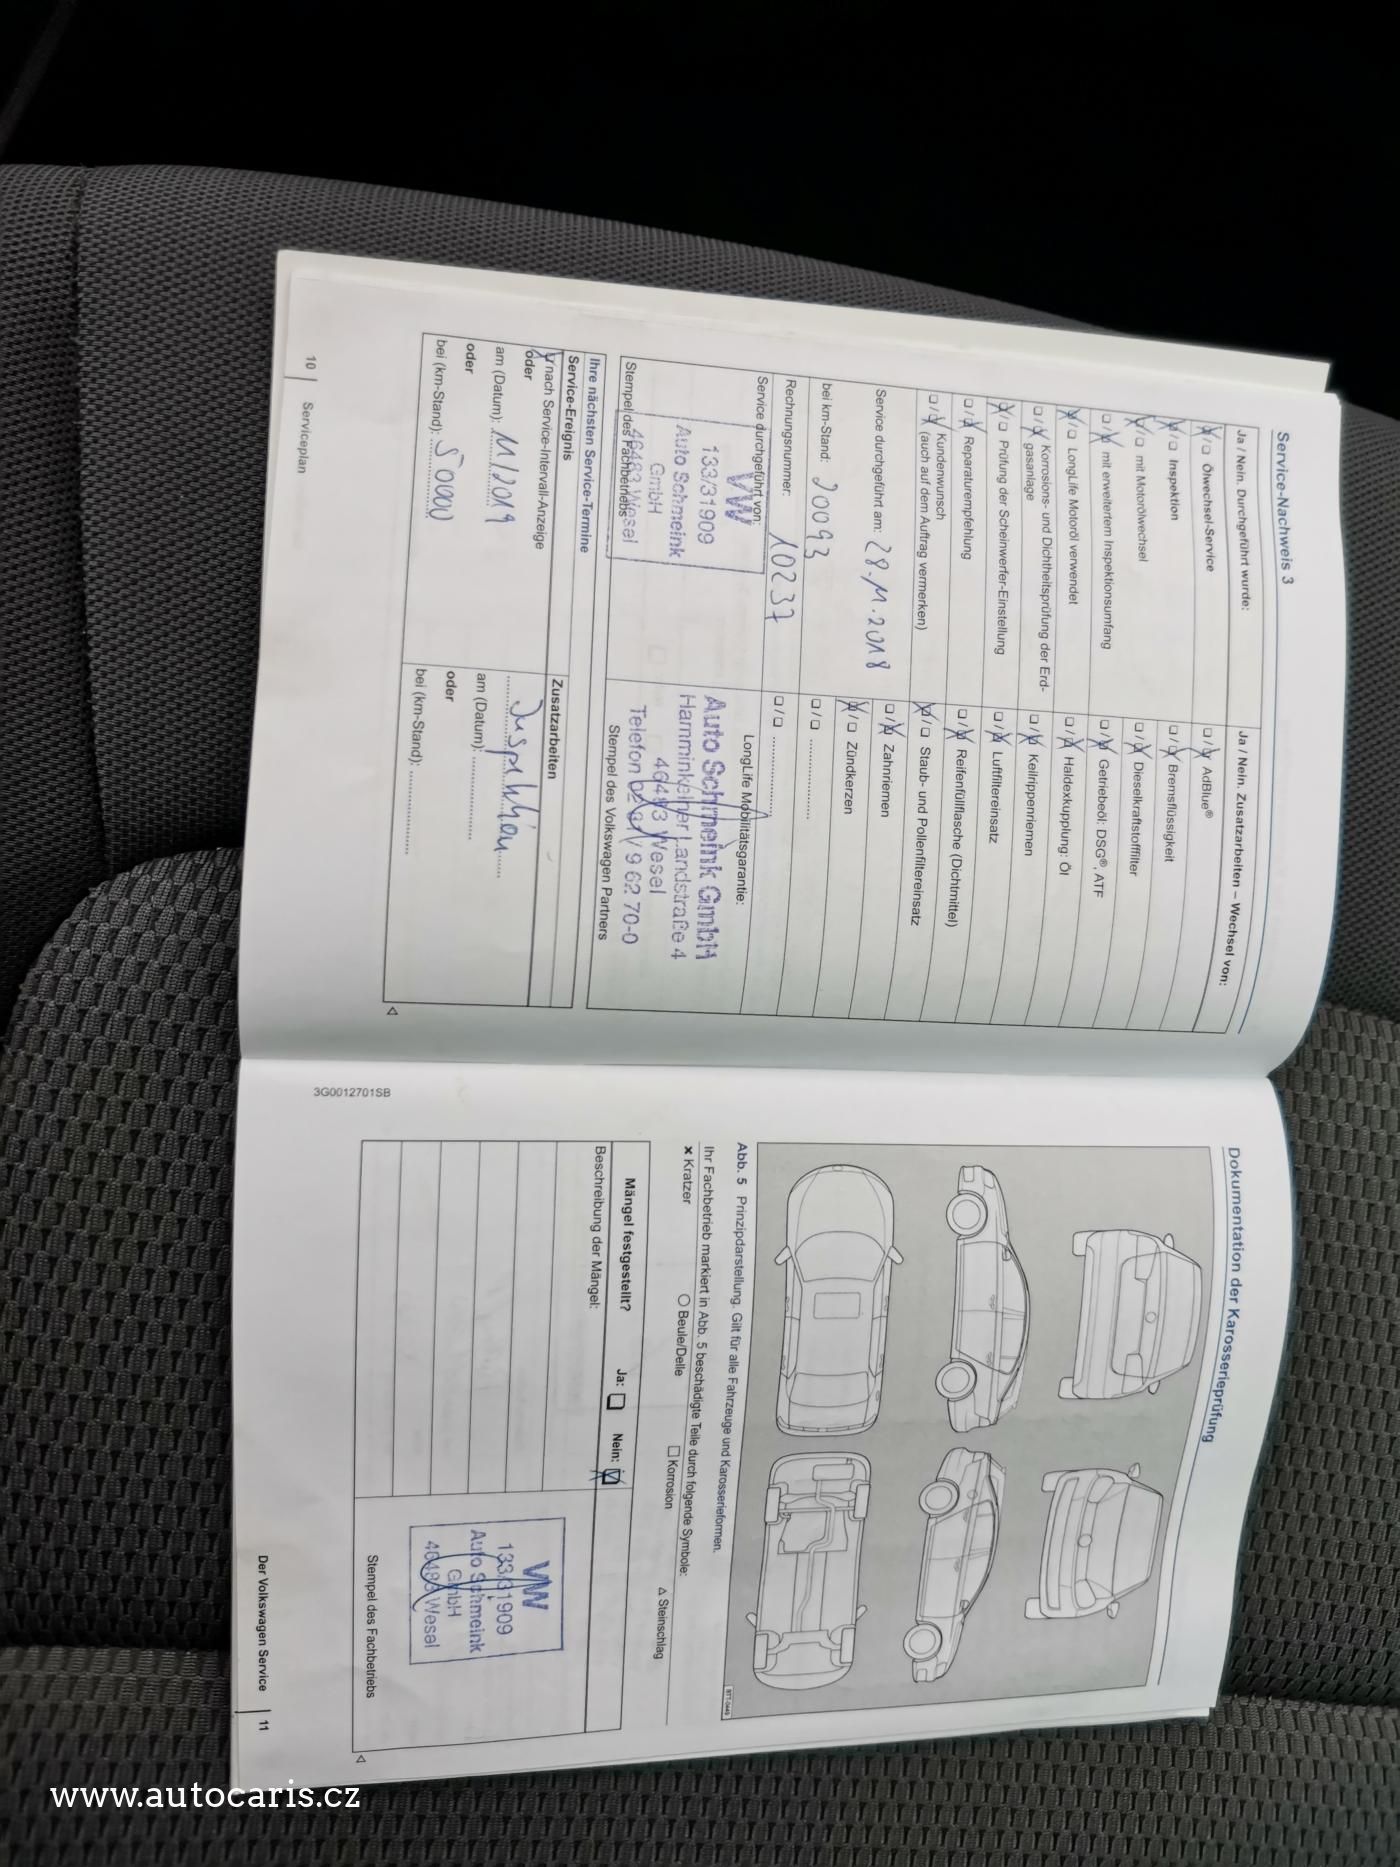 Service-Nachweis 3
Ja / Nein. Durchgeführt wurde:
☒/☐ Ölwechsel-Service
☒/☐ Inspektion
☒/☐ mit Motorölwechsel
☐/☒ mit erweitertem Inspektionsumfang
☒/☐ LongLife Motoröl verwendet
☐/☒ Korrosions- und Dichtheitsprüfung der Erd-
gasanlage
☒/☐ Prüfung der Scheinwerfer-Einstellung
☐/☒ Reparaturempfehlung
☐/☒ Kundenwunsch
(auch auf dem Auftrag vermerken)
Service durchgeführt am: 28.11.2018
bei km-Stand: 20093
Rechnungsnummer: 10237
Service durchgeführt von:
VW
133/31909
Auto Schmeink
GmbH
46483 Wesel
Stempel des Fachbetriebs
Ja / Nein. Zusatzarbeiten – Wechsel von:
☐/☒ AdBlue®
☐/☒ Bremsflüssigkeit
☐/☒ Dieselkraftstofffilter
☐/☒ Getriebeöl: DSG®, ATF
☐/☒ Haldexkupplung: Öl
☐/☒ Keilrippenriemen
☐/☒ Luftfiltereinsatz
☐/☒ Reifenfüllflasche (Dichtmittel)
☒/☐ Staub- und Pollenfiltereinsatz
☐/☒ Zahnriemen
☒/☐ Zündkerzen
☐/☐ ....................
☐/☐ ....................
LongLife Mobilitätsgarantie:
Auto Schmeink GmbH
Hamminkelner Landstraße 4
46483 Wesel
Telefon 02 81 / 9 62 70-0
Stempel des Volkswagen Partners
Ihre nächsten Service-Termine
Service-Ereignis
nach Service-Intervall-Anzeige
oder
am (Datum): 11/2019
oder
bei (km-Stand): 50000
Zusatzarbeiten
Inspektion
am (Datum): ....................
oder
bei (km-Stand): ....................
10 | Serviceplan
Dokumentation der Karosserieprüfung
BTT-0449
Abb. 5 Prinzipdarstellung. Gilt für alle Fahrzeuge und Karosserieformen.
Ihr Fachbetrieb markiert in Abb. 5 beschädigte Teile durch folgende Symbole:
× Kratzer ○ Beule/Delle □ Korrosion △ Steinschlag
Mängel festgestellt? Ja: ☐ Nein: ☒
Beschreibung der Mängel:
VW
133/31909
Auto Schmeink
GmbH
46483 Wesel
Stempel des Fachbetriebs
3G0012701SB
Der Volkswagen Service | 11
www.autocaris.cz